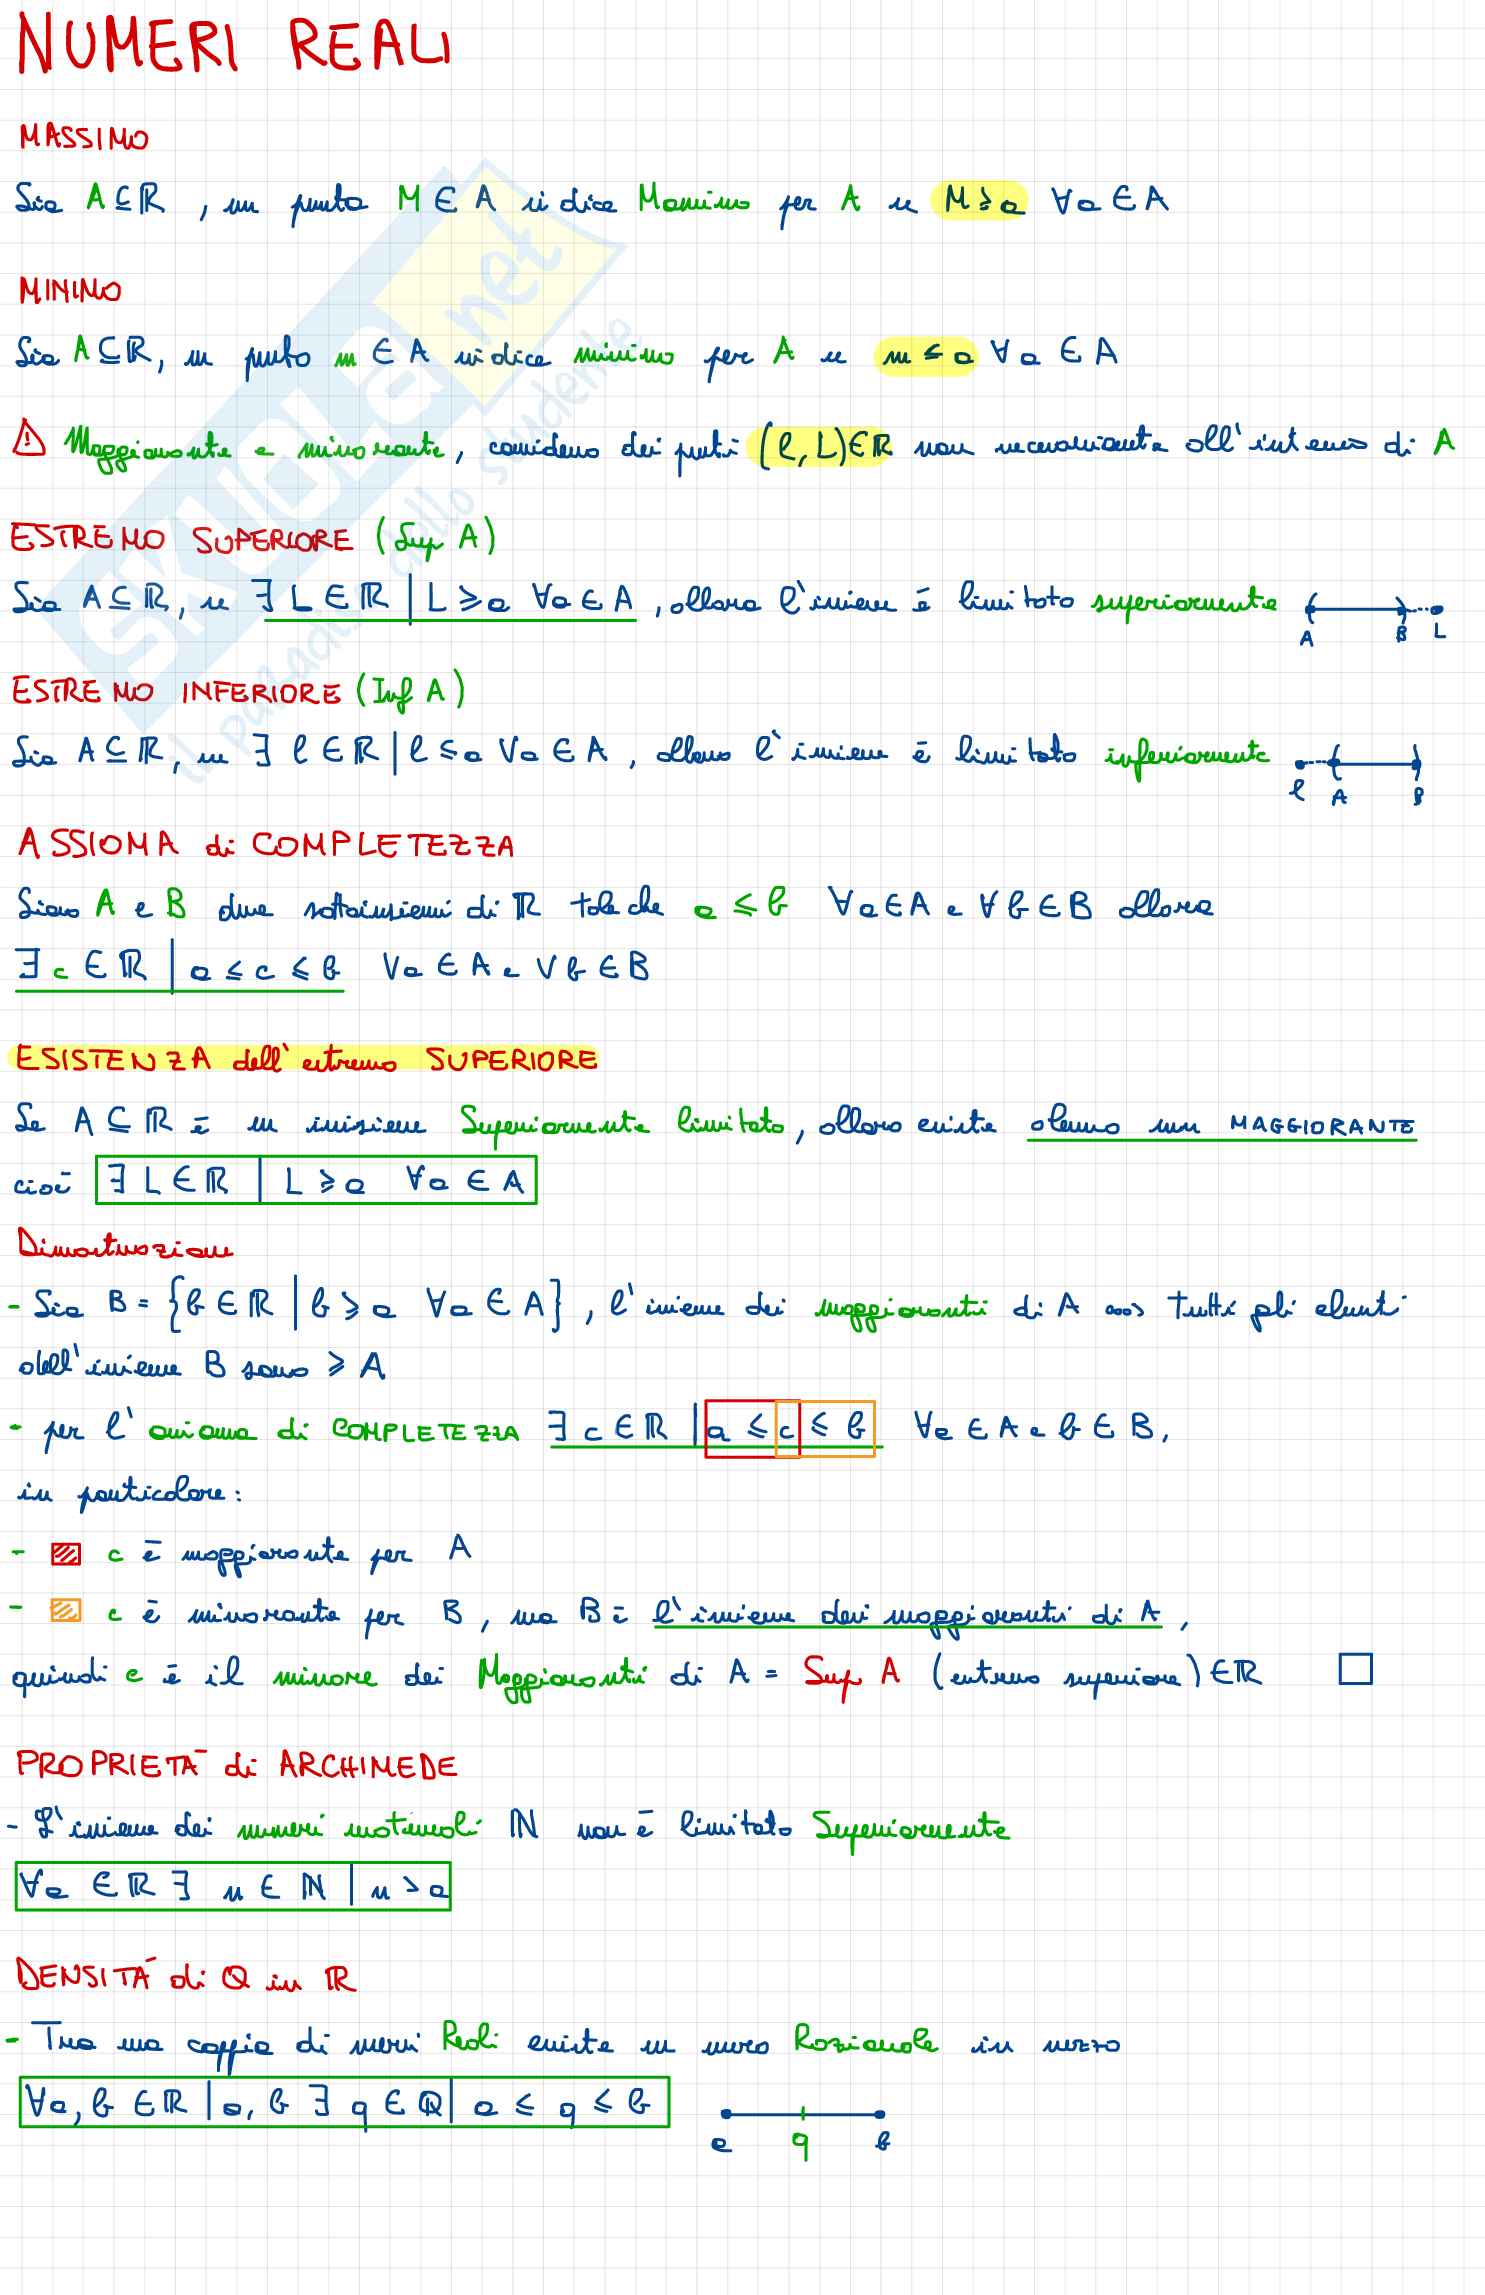 NUMERI REALI
MASSIMO
Sia A ⊆ ℝ , un punto M ∈ A si dice Massimo per A se M ≥ a ∀a ∈ A
MINIMO
Sia A ⊆ ℝ, un punto m ∈ A si dice minimo per A se m ≤ a ∀a ∈ A
⚠ Maggiorante e minorante, considero dei punti (l, L) ∈ ℝ non necessariamente all'interno di A
ESTREMO SUPERIORE (Sup A)
Sia A ⊆ ℝ, se ∃ L ∈ ℝ | L ≥ a ∀a ∈ A , allora l'insieme è limitato superiormente
A B L
ESTREMO INFERIORE (Inf A)
Sia A ⊆ ℝ, se ∃ l ∈ ℝ | l ≤ a ∀a ∈ A , allora l'insieme è limitato inferiormente
l A B
ASSIOMA di COMPLETEZZA
Siano A e B due sottoinsiemi di ℝ tale che a ≤ b ∀a ∈ A e ∀b ∈ B allora
∃ c ∈ ℝ | a ≤ c ≤ b ∀a ∈ A e ∀b ∈ B
ESISTENZA dell'estremo SUPERIORE
Se A ⊆ ℝ è un insieme Superiormente limitato, allora esiste almeno un MAGGIORANTE
cioè ∃ L ∈ ℝ | L ≥ a ∀a ∈ A
Dimostrazione
- Sia B = {b ∈ ℝ | b ≥ a ∀a ∈ A} , l'insieme dei maggioranti di A ⇒ Tutti gli elementi
dell'insieme B sono ≥ A
- per l'assioma di COMPLETEZZA ∃ c ∈ ℝ | a ≤ c ≤ b ∀a ∈ A e b ∈ B,
in particolare:
- c è maggiorante per A
- c è minorante per B , ma B è l'insieme dei maggioranti di A ,
quindi c è il minore dei Maggioranti di A = Sup A (estremo superiore) ∈ ℝ □
PROPRIETÀ di ARCHIMEDE
- L'insieme dei numeri naturali ℕ non è limitato Superiormente
∀a ∈ ℝ ∃ n ∈ ℕ | n > a
DENSITÀ di ℚ in ℝ
- Tra una coppia di numeri Reali esiste un numero Razionale in mezzo
∀a, b ∈ ℝ | a, b ∃ q ∈ ℚ | a ≤ q ≤ b
a q b
SKUOLA.net
il paradiso dello studente